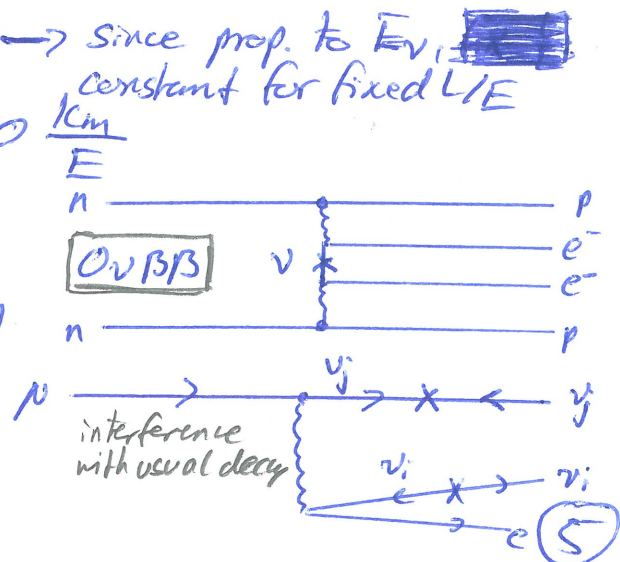 → since prop. to Eν,
constant for fixed L/E
km
E
n p
e⁻
0νββ ν
e⁻
n p
νj
μ νj
interference
with usual decay
νi νi
e 5